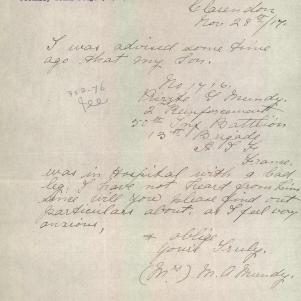 Clarendon
Nov. 28th/17.
I was advised some time
ago that my Son.
No 1716.
G Mundy.
2 Reinforcement
Inf Battlion
13th Brigade
A I F
France.
was in Hospital with a bad
leg; I have not heard from him
since will you please find out
particulars about. as I feel very
anxious,
& oblige
Yours Truly.
(Mrs) M. A Mundy.